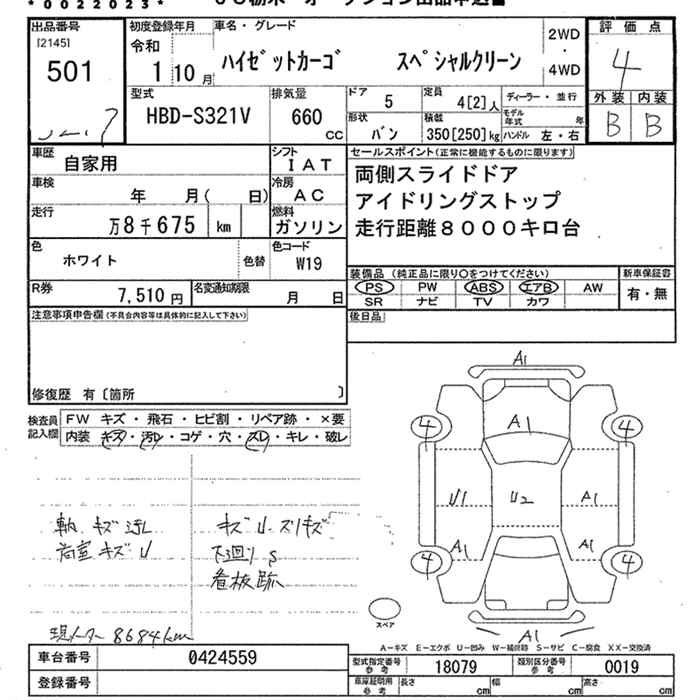 *0022023*
出品番号
[2145]
501
初度登録年月
令和
1 10月
車名・グレード
ハイゼットカーゴ スペシャルクリーン
2WD
・
4WD
評価点
4
外装 内装
B B
型式
HBD-S321V
排気量
660
CC
ドア
5
定員
4[2]人
ディーラー・並行
形状
バン
積載
350[250]kg
モデル年式 年
ハンドル 左・右
車歴
自家用
シフト
IAT
車検
年 月( 日)
冷房
AC
走行
万8千675 km
燃料
ガソリン
色
ホワイト
色替
色コード
W19
R券
7,510円
名変通知期限
月 日
セールスポイント(正常に機能するものに限ります)
両側スライドドア
アイドリングストップ
走行距離8000キロ台
装備品(純正品に限り○をつけてください)
PS PW ABS エアB AW
SR ナビ TV カワ
新車保証書
有・無
後日品
注意事項申告欄(不具合内容等は具体的に記入して下さい)
修復歴 有〔箇所 〕
検査員記入欄
FW キズ・飛石・ヒビ割・リペア跡・×要
内装 キズ・汚レ・コゲ・穴・スレ・キレ・破レ
キズ U スリキズ
荷室 キズ U
下廻り S
看板跡
現メーター 8684km
A1
A1
4 4
U1 U2 A1
A1 A1
4 4
A1
スペア
A-キズ E-エクボ U-凹み W-補修跡 S-サビ C-腐食 XX-交換済
車台番号
0424559
登録番号
型式指定番号
参考
18079
類別区分番号
参考
0019
車庫証明用
参考
長さ cm 幅 cm 高さ cm